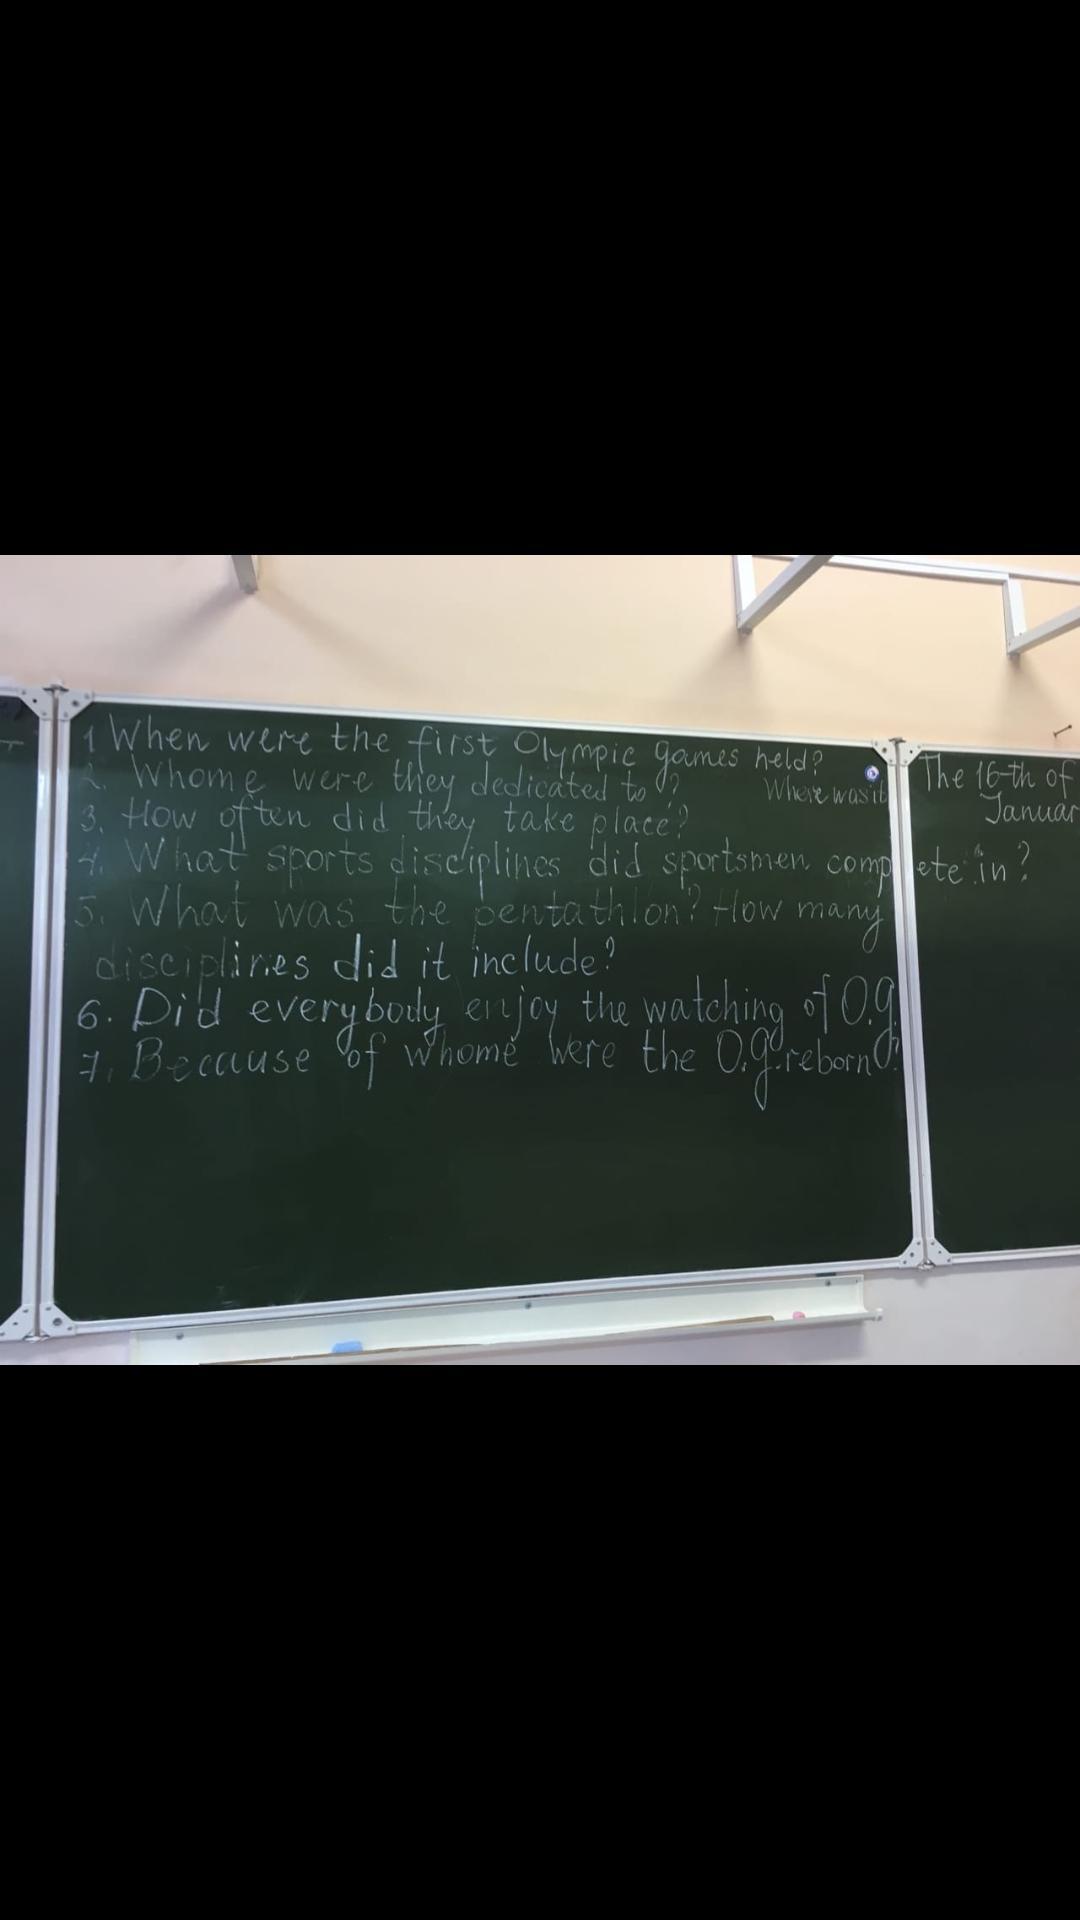 1 When were the first Olympic games held?
2. Whome were they dedicated to?
Where was it
3. How often did they take place?
4. What sports disciplines did sportsmen compete in?
5. What was the pentathlon? How many
disciplines did it include?
6. Did everybody enjoy the watching of O.g.
7. Because of whome were the O.g. reborn?
The 16-th of
Januar